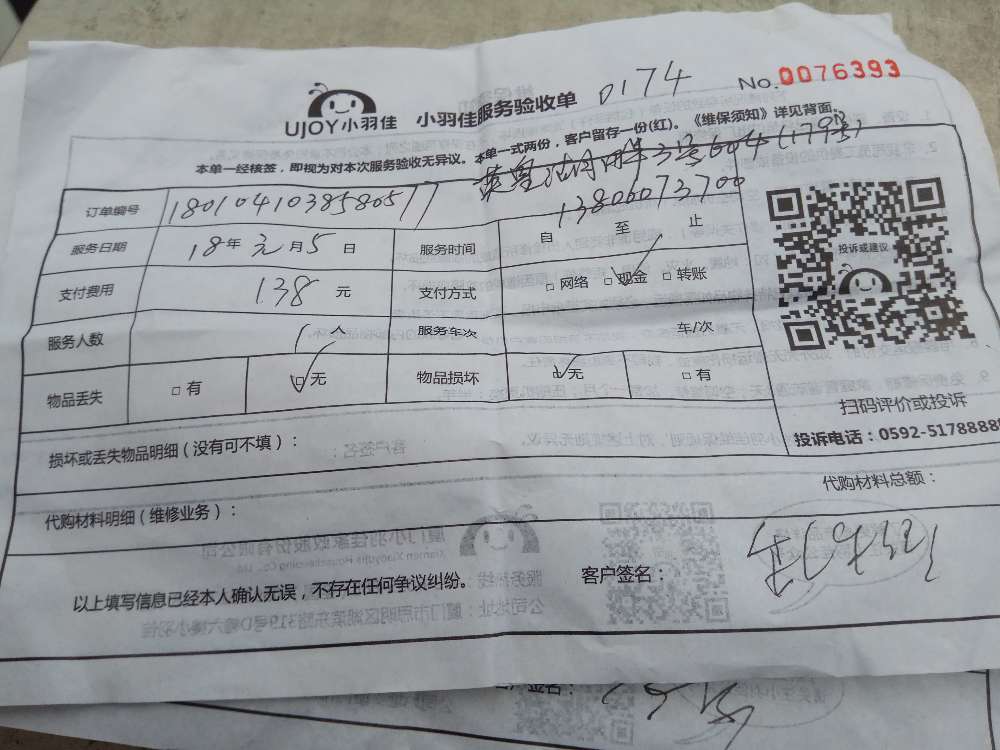 UJOY小羽佳 小羽佳服务验收单 0174 No.0076393
本单一经核签，即视为对本次服务验收无异议。本单一式两份，客户留存一份(红)。《维保须知》详见背面。
3号604(179号)
13806073700
订单编号 1801041038580577
服务日期 18年元月5日 服务时间 自 至 止
支付费用 138元 支付方式 □网络 □现金 □转账
服务人数 1人 服务车次 车/次
物品丢失 □有 □无 物品损坏 □无 □有
投诉或建议
扫码评价或投诉
投诉电话：0592-5178888
损坏或丢失物品明细（没有可不填）：
代购材料总额：
代购材料明细（维修业务）：
以上填写信息已经本人确认无误，不存在任何争议纠纷。
客户签名：
客户签名：